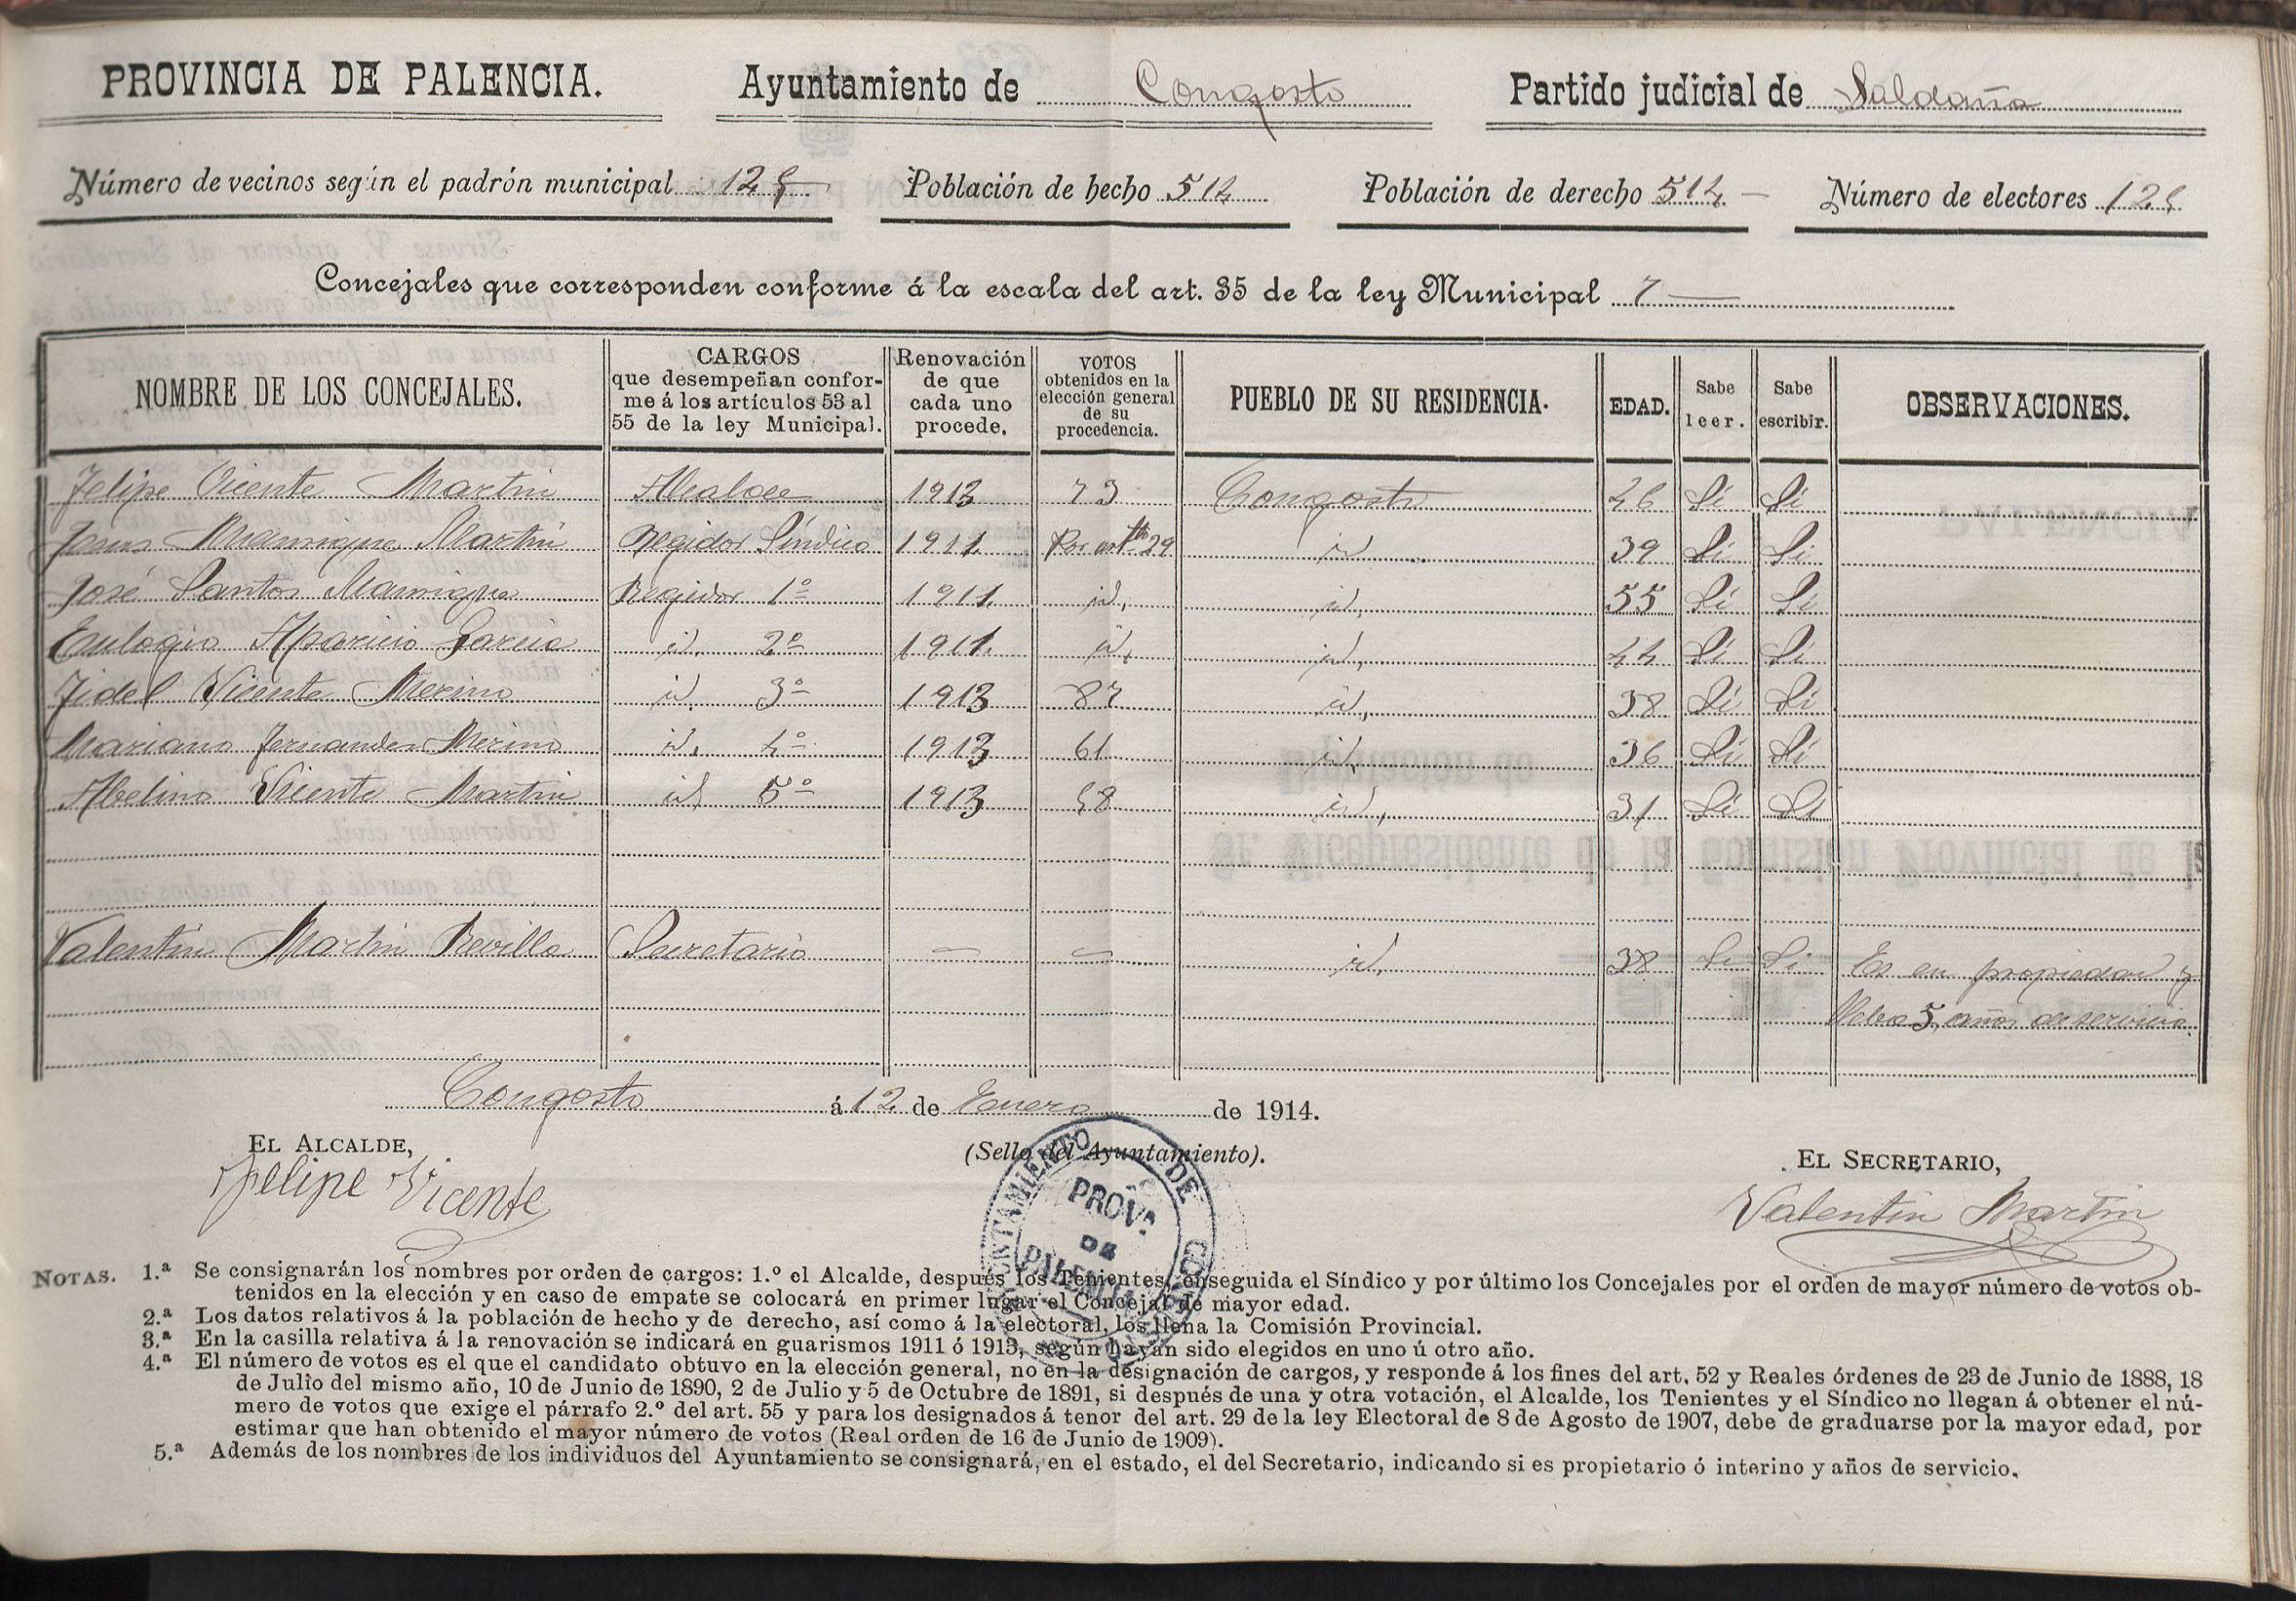 PROVINCIA DE PALENCIA. Ayuntamiento de Congosto Partido judicial de Saldaña
Número de vecinos según el padrón municipal 125 Población de hecho 514 Población de derecho 514 Número de electores 125
Concejales que corresponden conforme á la escala del art. 35 de la ley Municipal 7
NOMBRE DE LOS CONCEJALES. CARGOS que desempeñan conforme á los artículos 53 al 55 de la ley Municipal. Renovación de que cada uno procede. VOTOS obtenidos en la elección general de su procedencia. PUEBLO DE SU RESIDENCIA. EDAD. Sabe leer. Sabe escribir. OBSERVACIONES.
Felipe Vicente Martin Alcalde 1913 73 Congosto 46 Si Si
Manrique Martin Regidor Síndico 1911 Por artº 29 id 39 Si Si
José Santos Manrique Regidor 1º 1911 id, id, 55 Si Si
Eulogio Aparicio Garcia id. 2º 1911 id, id, 44 Si Si
Fidel Vicente Merino id. 3º 1913 87 id, 38 Si Si
Mariano Fernandez Merino id. 4º 1913 61 id, 36 Si Si
Abelino Vicente Martin id 5º 1913 58 id, 31 Si Si
Valentin Martin Revilla Secretario — — id, 38 Si Si Es en propiedad y
lleba 5 años de servicio.
Congosto á 12 de Enero de 1914.
EL ALCALDE, (Sello del Ayuntamiento). EL SECRETARIO,
Felipe Vicente Valentin Martin
AYUNTAMIENTO DE CONGOSTO
PROVª
DE
PALENCIA
NOTAS. 1.ª Se consignarán los nombres por orden de cargos: 1.º el Alcalde, después los Tenientes, enseguida el Síndico y por último los Concejales por el orden de mayor número de votos ob-
tenidos en la elección y en caso de empate se colocará en primer lugar el Concejal de mayor edad.
2.ª Los datos relativos á la población de hecho y de derecho, así como á la electoral, los llena la Comisión Provincial.
3.ª En la casilla relativa á la renovación se indicará en guarismos 1911 ó 1913, según hayan sido elegidos en uno ú otro año.
4.ª El número de votos es el que el candidato obtuvo en la elección general, no en la designación de cargos, y responde á los fines del art. 52 y Reales órdenes de 23 de Junio de 1888, 18
de Julio del mismo año, 10 de Junio de 1890, 2 de Julio y 5 de Octubre de 1891, si después de una y otra votación, el Alcalde, los Tenientes y el Síndico no llegan á obtener el nú-
mero de votos que exige el párrafo 2.º del art. 55 y para los designados á tenor del art. 29 de la ley Electoral de 8 de Agosto de 1907, debe de graduarse por la mayor edad, por
estimar que han obtenido el mayor número de votos (Real orden de 16 de Junio de 1909).
5.ª Además de los nombres de los individuos del Ayuntamiento se consignará, en el estado, el del Secretario, indicando si es propietario ó interino y años de servicio.